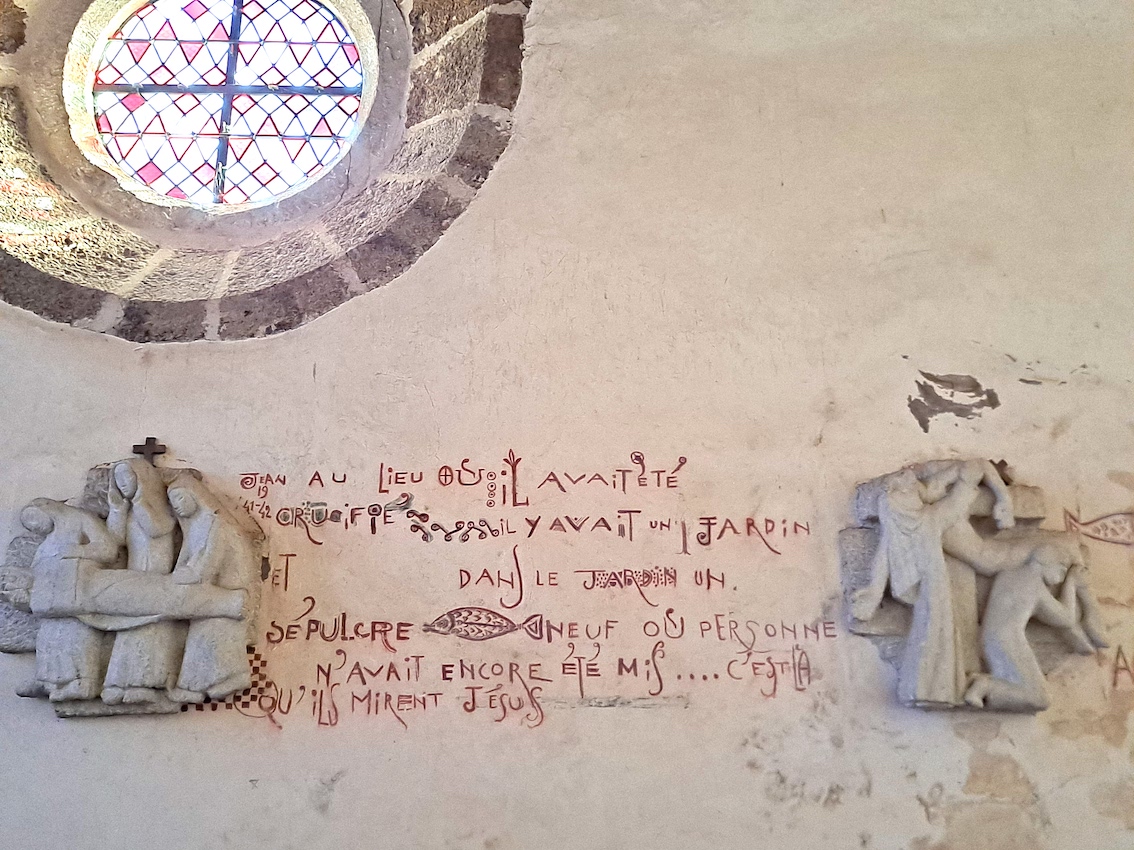 JEAN AU LIEU OÙ IL AVAIT ÉTÉ
19
41-42 CRUCIFIÉ IL Y AVAIT UN JARDIN
ET DANS LE JARDIN UN.
SÉPULCRE NEUF OÙ PERSONNE
N'AVAIT ENCORE ÉTÉ MIS.... C'EST LÀ
QU'ILS MIRENT JÉSUS
A